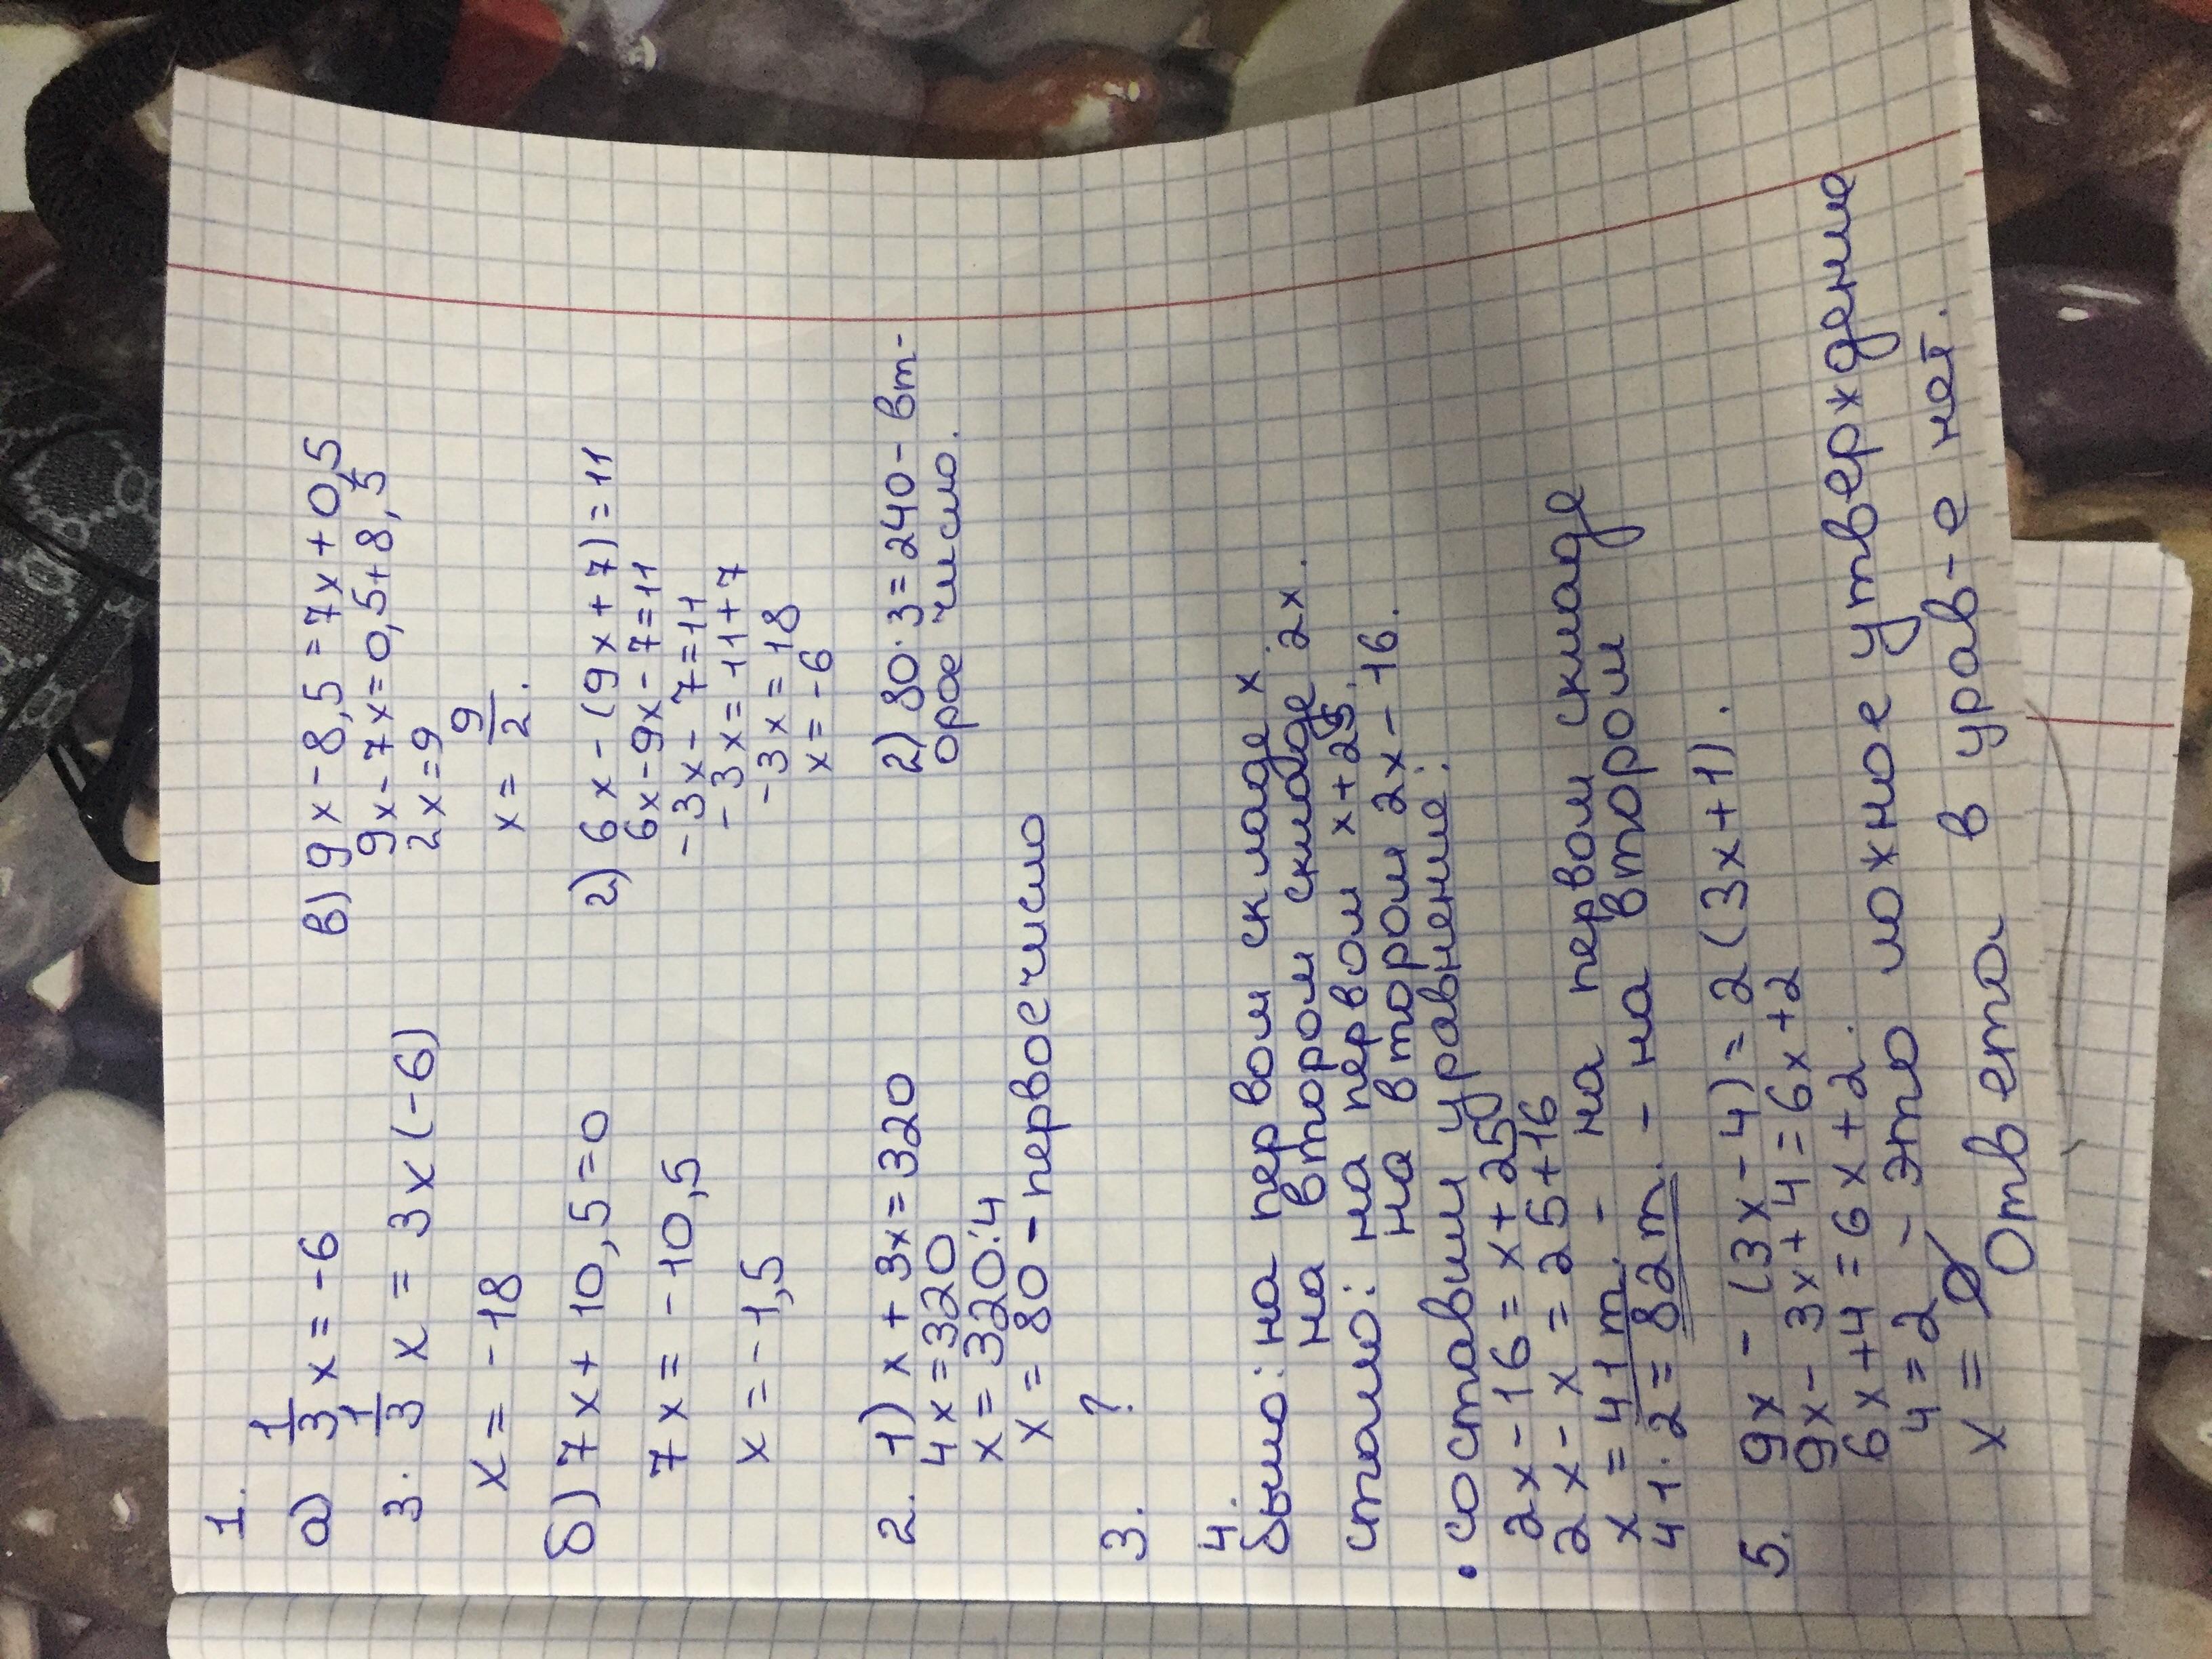 1.
а) 1/3 x = -6
3. 1/3 x = 3 x (-6)
x = -18
б) 7x + 10,5 = 0
7x = -10,5
x = -1,5
в) 9x - 8,5 = 7x + 0,5
9x - 7x = 0,5 + 8,5
2x = 9
x = 9/2.
г) 6x - (9x + 7) = 11
6x - 9x - 7 = 11
-3x - 7 = 11
-3x = 11 + 7
-3x = 18
x = -6
2. 1) x + 3x = 320
4x = 320
x = 320:4
x = 80 - первое число
2) 80·3 = 240 - вт-
орое число.
3. ?
4.
было: на первом складе x
на втором складе 2x.
стало: на первом x + 25.
на втором 2x - 16.
• составим уравнение:
2x - 16 = x + 25
2x - x = 25 + 16
x = 41 т. - на первом складе
41·2 = 82 т. - на втором
5. 9x - (3x - 4) = 2(3x + 1).
9x - 3x + 4 = 6x + 2
6x + 4 = 6x + 2.
4 = 2 - это ложное утверждение
x = ∅
Ответа в урав-е нет.